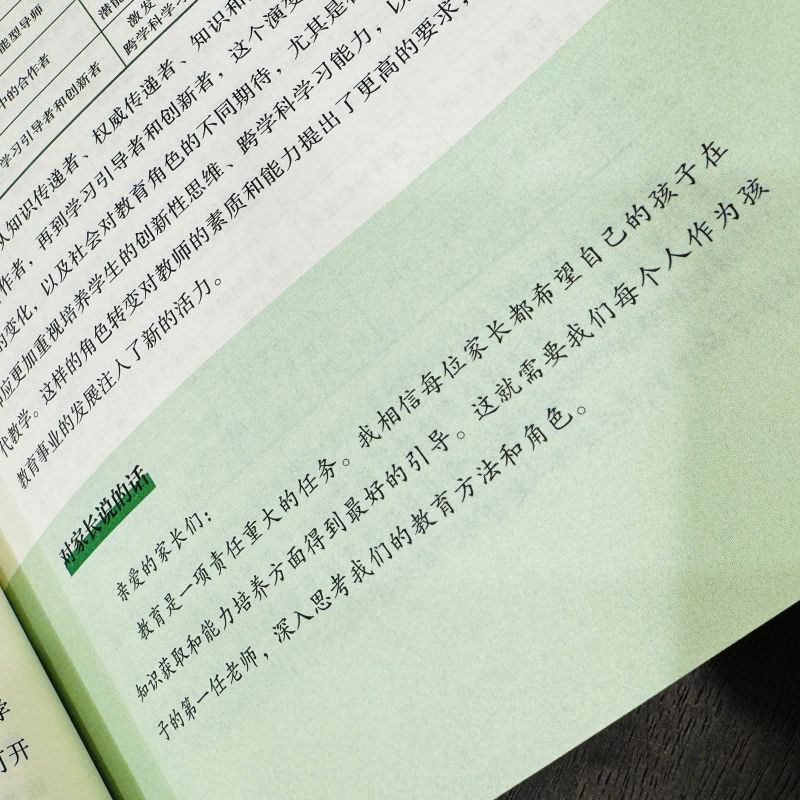 能型导师
潜能
激发
中的合作者
跨学科学
学习引导者和创新者
知识传递者、权威传递者、知识和
作者，再到学习引导者和创新者，这个演变
的变化，以及社会对教育角色的不同期待，尤其是
应更加重视培养学生的创新性思维、跨学科学习能力，以
代教学。这样的角色转变对教师的素质和能力提出了更高的要求，
教育事业的发展注入了新的活力。
对家长说的话
亲爱的家长们：
教育是一项责任重大的任务。我相信每位家长都希望自己的孩子在
知识获取和能力培养方面得到最好的引导。这就需要我们每个人作为孩
子的第一任老师，深入思考我们的教育方法和角色。
学
打开